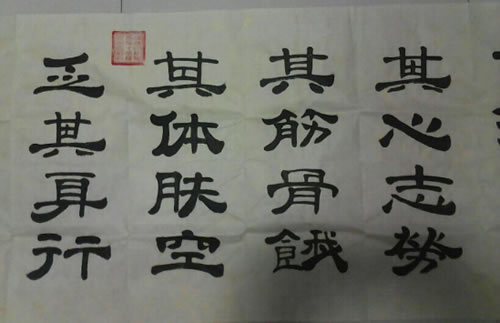 其心志勞
其筋骨餓
其体肤空
乏其身行